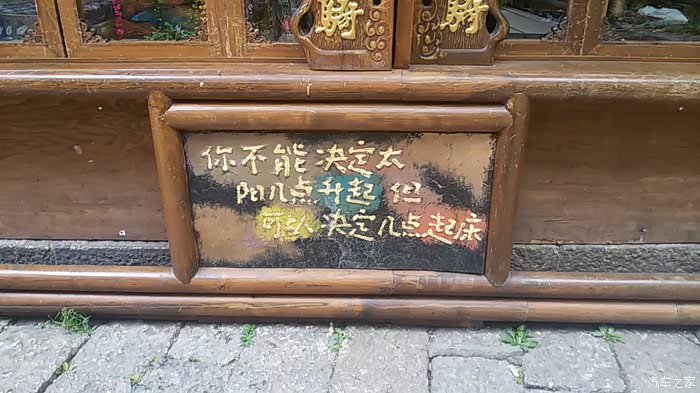 勝 勝
你不能决定太
阳几点升起 但
可以决定几点起床
汽车之家